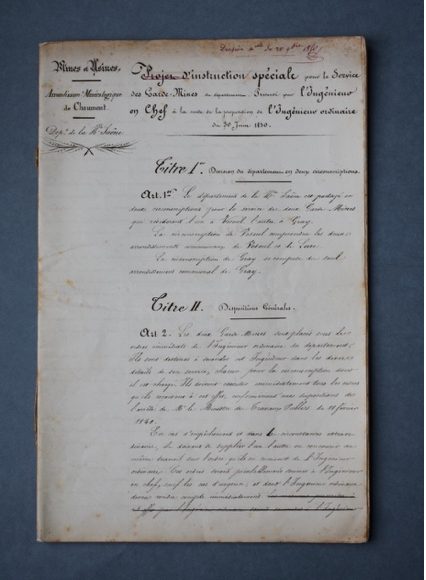 Mines et Usines,
Arrondissem.t Minéralogique
de Chaumont.
Dép.t de la H.te Saône
Projet d'instruction spéciale pour le Service
des Garde-Mines du département par l'Ingénieur
en Chef à la suite de la proposition de l'Ingénieur ordinaire
du 30 Juin 1850.
Titre I.er Division du département en deux circonscriptions.
Art. 1.er Le département de la H.te Saône est partagé en
deux circonscriptions pour le service des deux Garde Mines
qui résideront l'un à Vesoul l'autre à Gray.
La circonscription de Vesoul comprendra les deux
arrondissements communaux de Vesoul et de Lure.
La circonscription de Gray se compose du seul
arrondissement communal de Gray.
Titre II. Dispositions Générales.
Art 2. Les deux Garde Mines sont placés sous les
ordres immédiats de l'Ingénieur ordinaire du département;
Ils sont destinés à seconder cet Ingénieur dans les divers
détails de son service, chacun pour la circonscription dont
il est chargé. Ils doivent exécuter immédiatement tous les ordres
qu'ils recevront à cet effet, conformément aux dispositions de
l'arrêté de M. le Ministre des Travaux Publics du 18 février
1840.
En cas d'empêchement et dans les circonstances extraor-
dinaires, ils doivent se suppléer l'un l'autre ou concourir au
même travail sur l'ordre qu'ils en recevront de l'Ingénieur
ordinaire. Ces ordres seront préalablement soumis à l'Ingénieur
en chef, sauf les cas d'urgence, et dont l'Ingénieur ordinaire
devra rendre compte immédiatement